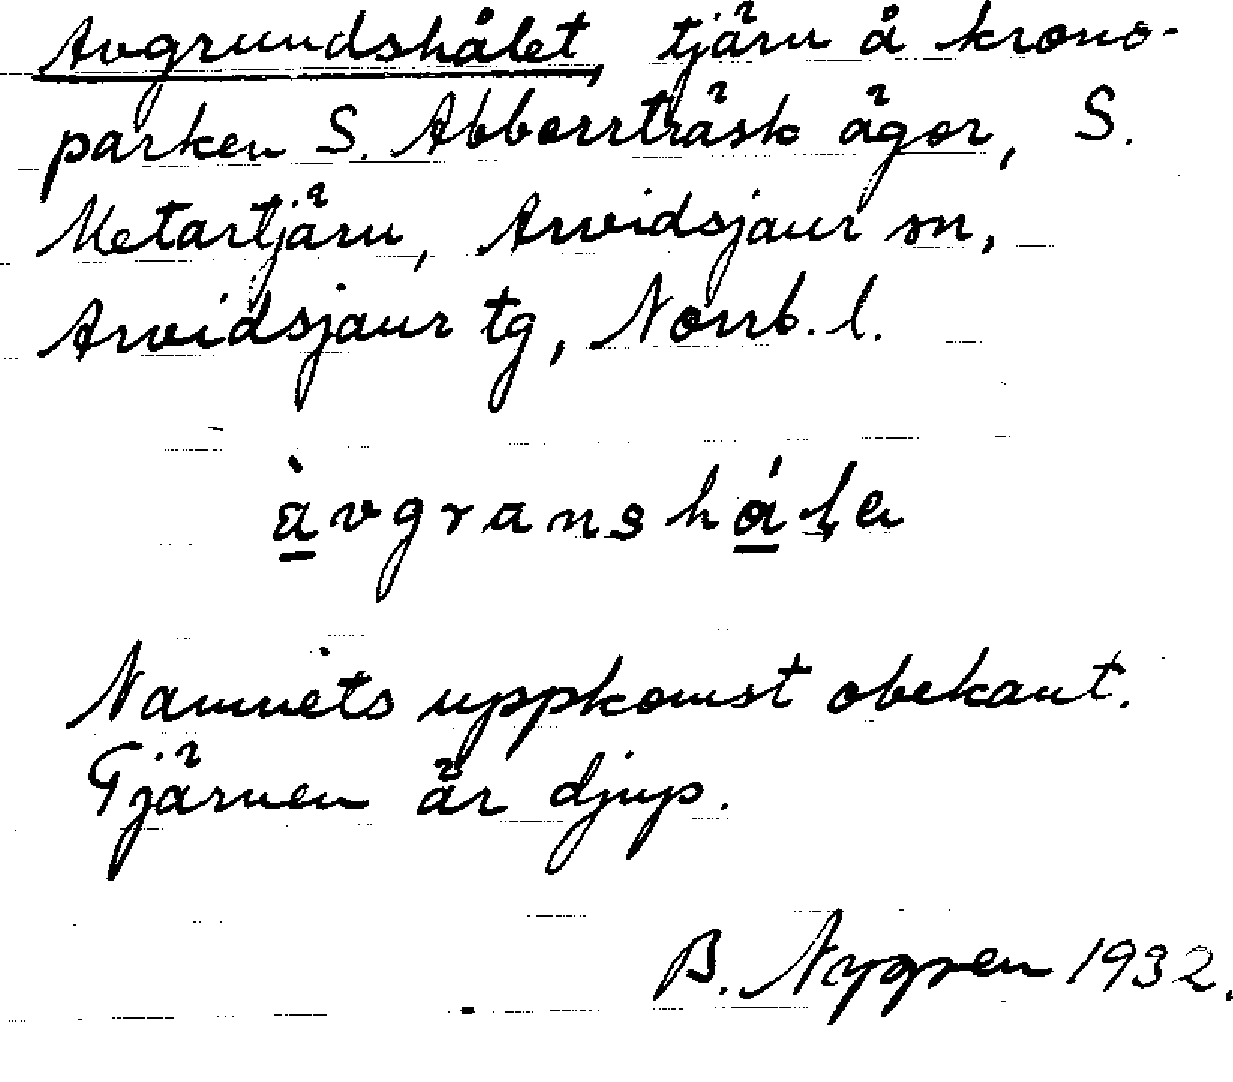 Avgrundshålet, tjärn å krono-
parken S. Abborrträsk ägor, S.
Metartjärn, Arvidsjaur sn,
Arvidsjaur tg, Norrb. l.
àvgranshála
Namnets uppkomst obekant.
Tjärnen är djup.
B. Nygren 1932.